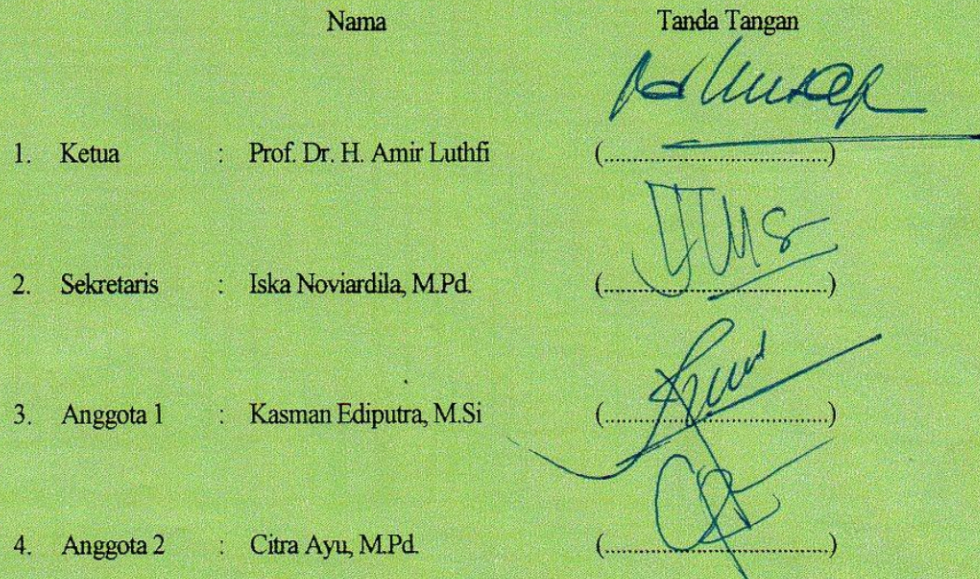 Nama Tanda Tangan
1. Ketua : Prof. Dr. H. Amir Luthfi (..............................................)
2. Sekretaris : Iska Noviardila, M.Pd. (..............................................)
3. Anggota 1 : Kasman Ediputra, M.Si (..............................................)
4. Anggota 2 : Citra Ayu, M.Pd. (..............................................)